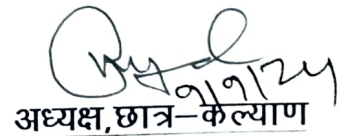 9/9/24
अध्यक्ष,छात्र–कल्याण